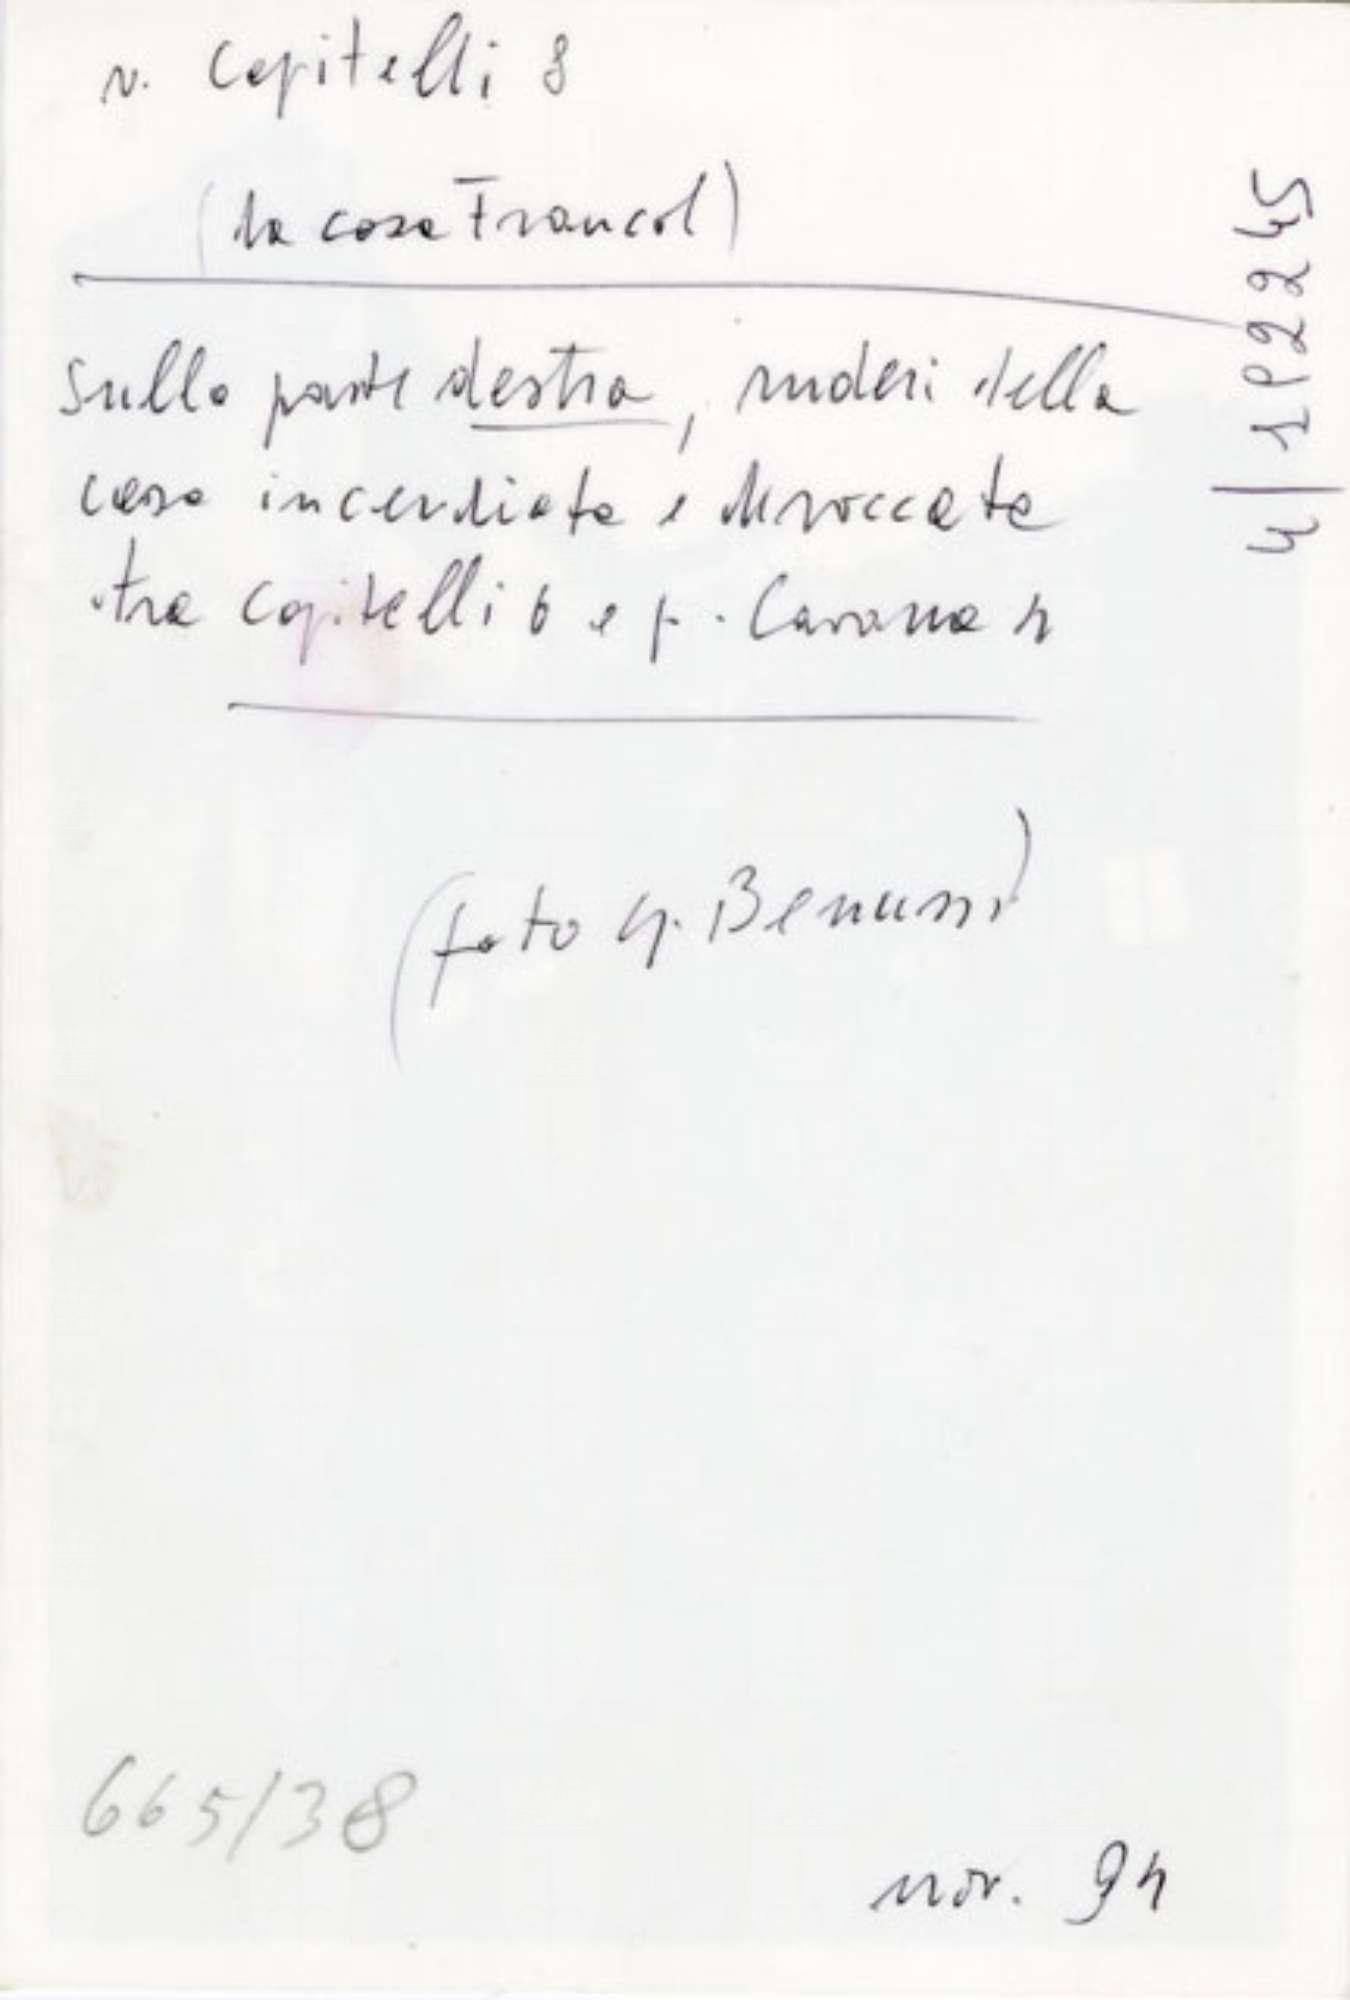 v. Capitelli 8
(la casa Francol)
Sulla parte destra, ruderi della
casa incendiata e diroccata
tra Capitelli 6 e p. Cavana 4
(foto G. Benussi)
665/38
nov. 94